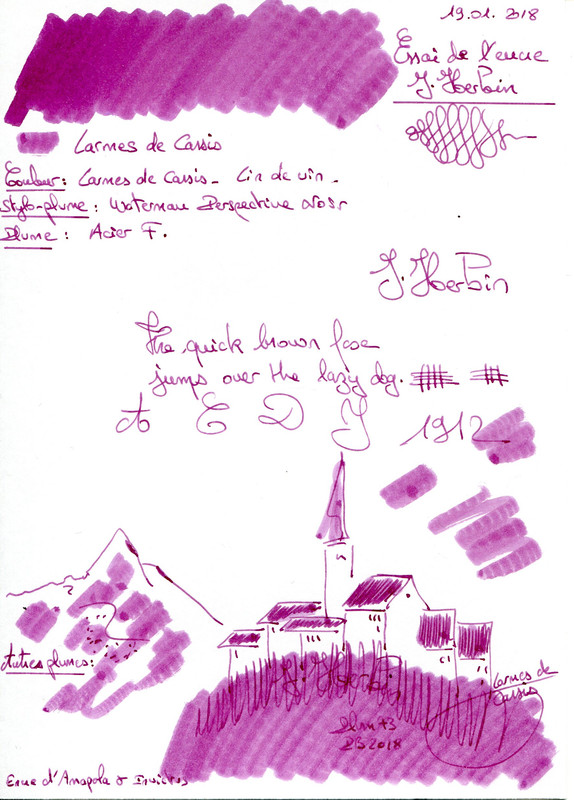 19.01.2018
Essai de l'encre
J. Herbin
Larmes de Cassis
Couleur : Larmes de Cassis - Lie de vin -
Stylo-plume : Waterman Perspective Noir
Plume : Acier F.
J. Herbin
The quick brown fox
jumps over the lazy dog.
A E D J 1912
Autres plumes :
J. Herbin
Larmes de
Cassis
2018
Encre d'Amapola &